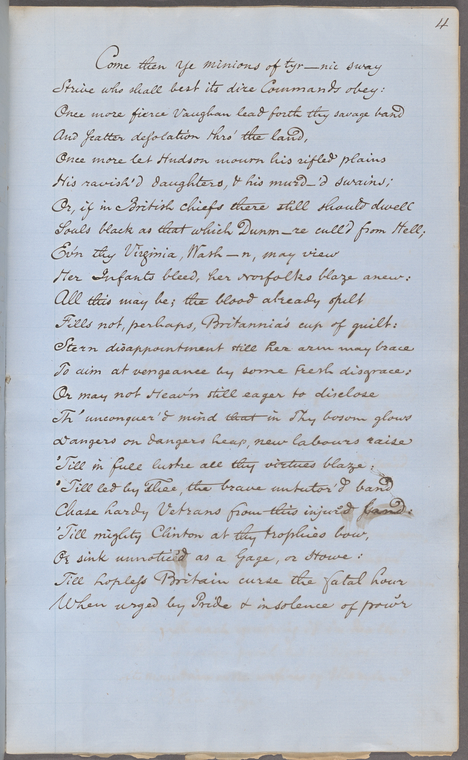 4
Come then ye minions of tyr—nic sway
Strive who shall best its dire Commands obey:
Once more fierce Vaughan lead forth thy savage band
And scatter desolation thro' the land,
Once more let Hudson mourn his rifled plains
His ravish'd daughters, & his murd—d swains;
Or, if in British chiefs there still should dwell
Souls black as that which Dunm—re cull'd from Hell;
Ev'n thy Virginia, Wash—n, may view
Her Infants bleed, her Norfolks blaze anew:
All this may be; the blood already spilt
Fills not, perhaps, Britannia's cup of guilt:
Stern disappointment still her arm may brace
To aim at vengeance by some fresh disgrace;
Or may not Heav'n still eager to disclose
Th' unconquer'd mind that in Thy bosom glows
Dangers on dangers heap, new labours raise
'Till in full lustre all thy virtues blaze;
'Till led by Thee, the brave untutor'd band
Chase hardy Vetrans from this injur'd land:
'Till mighty Clinton at thy trophies bow,
Or sink unnotic'd as a Gage, or Howe:
Till hopless Britain curse the fatal hour
When urged by Pride & insolence of pow'r